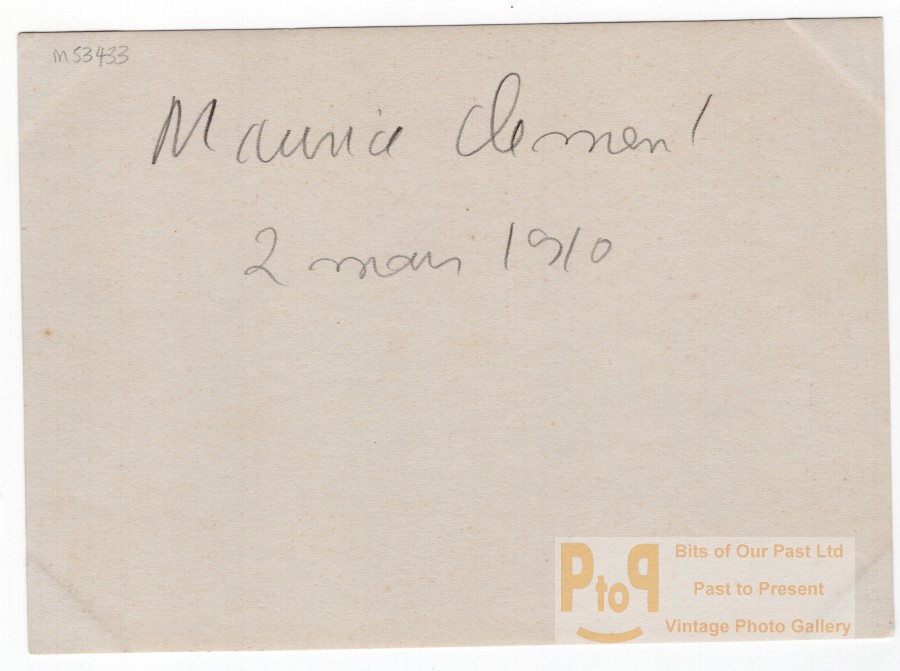 M53433
Maurice Clement
2 mars 1910
PtoP
Bits of Our Past Ltd
Past to Present
Vintage Photo Gallery